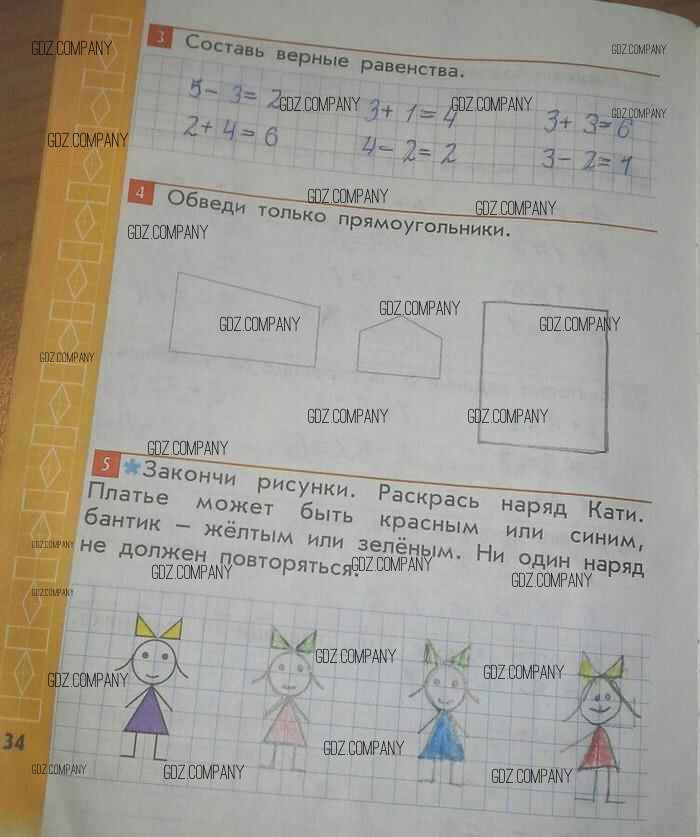 GDZ.COMPANY
3 Составь верные равенства.
GDZ.COMPANY
5 - 3 = 2 3 + 1 = 4 3 + 3 = 6
GDZ.COMPANY GDZ.COMPANY GDZ.COMPANY
2 + 4 = 6 4 - 2 = 2 3 - 2 = 1
GDZ.COMPANY
4 Обведи только прямоугольники.
GDZ.COMPANY GDZ.COMPANY
GDZ.COMPANY
GDZ.COMPANY
GDZ.COMPANY GDZ.COMPANY
GDZ.COMPANY
GDZ.COMPANY GDZ.COMPANY
GDZ.COMPANY
5 *Закончи рисунки. Раскрась наряд Кати.
Платье может быть красным или синим,
бантик – жёлтым или зелёным. Ни один наряд
не должен повторяться.
GDZ.COMPANY
GDZ.COMPANY GDZ.COMPANY GDZ.COMPANY
GDZ.COMPANY
GDZ.COMPANY
GDZ.COMPANY GDZ.COMPANY
34
GDZ.COMPANY
GDZ.COMPANY GDZ.COMPANY GDZ.COMPANY